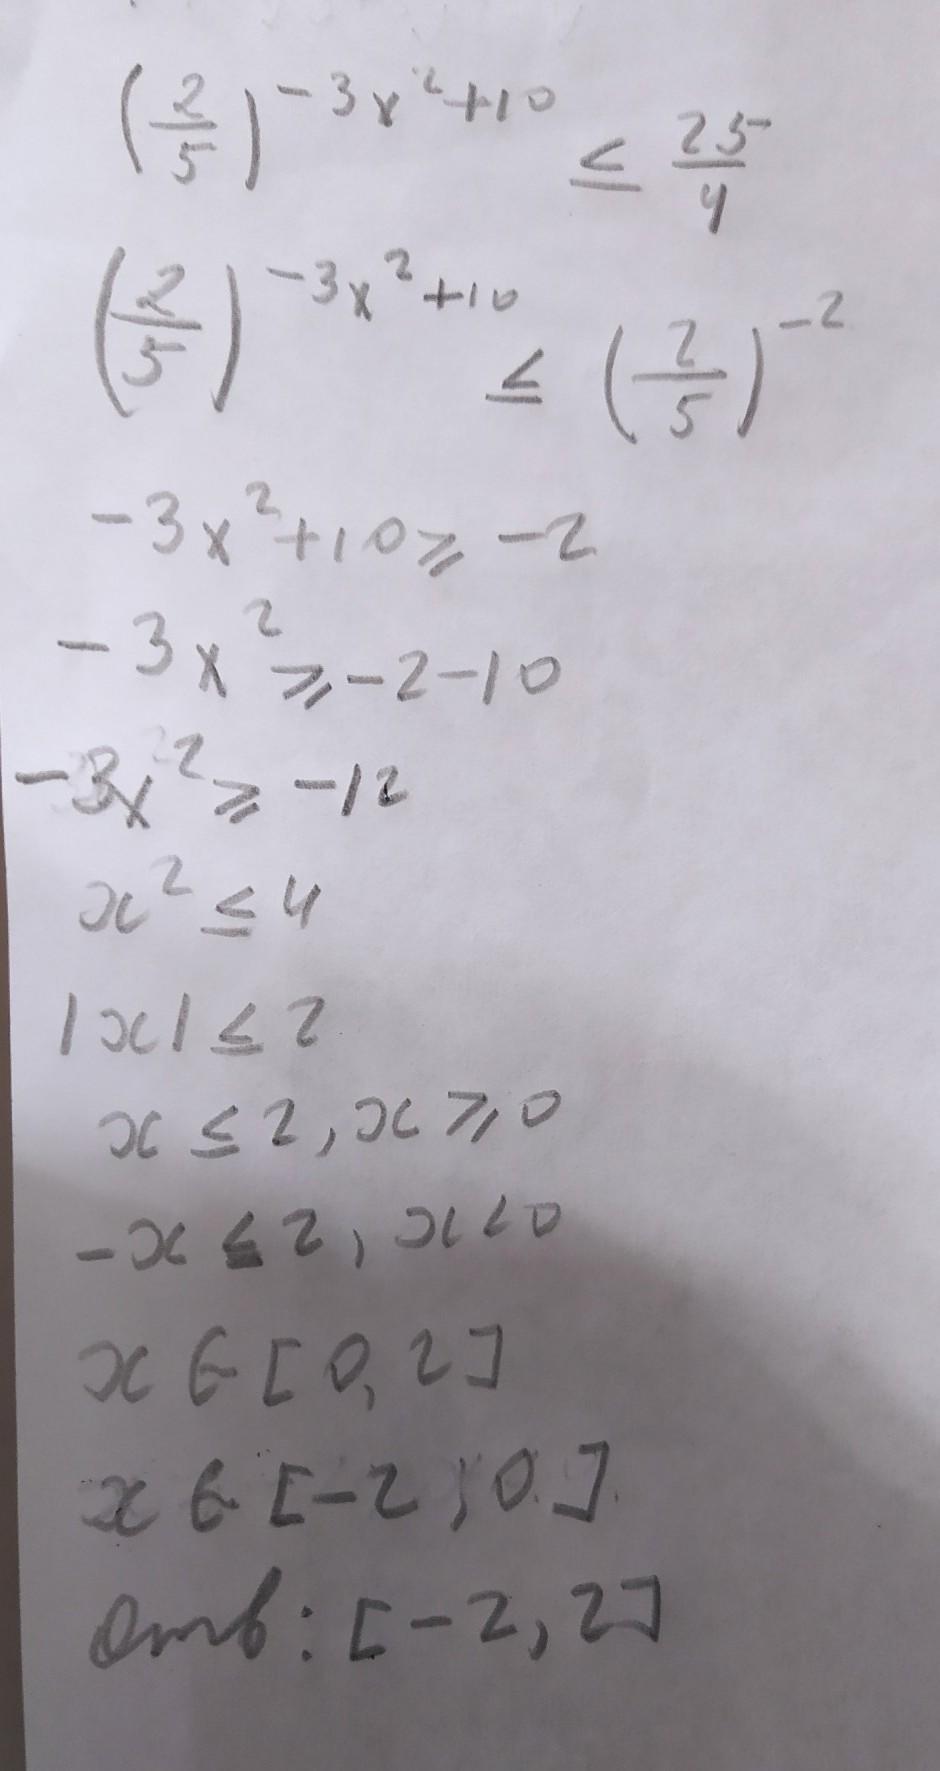 (2/5)^(-3x²+10) ≤ 25/4
(2/5)^(-3x²+10) ≤ (2/5)^(-2)
-3x²+10 ⩾ -2
-3x² ⩾ -2-10
-3x² ⩾ -12
x² ≤ 4
|x| ≤ 2
x ≤ 2, x ⩾ 0
-x ≤ 2, x < 0
x ∈ [0, 2]
x ∈ [-2, 0]
Отв: [-2, 2]